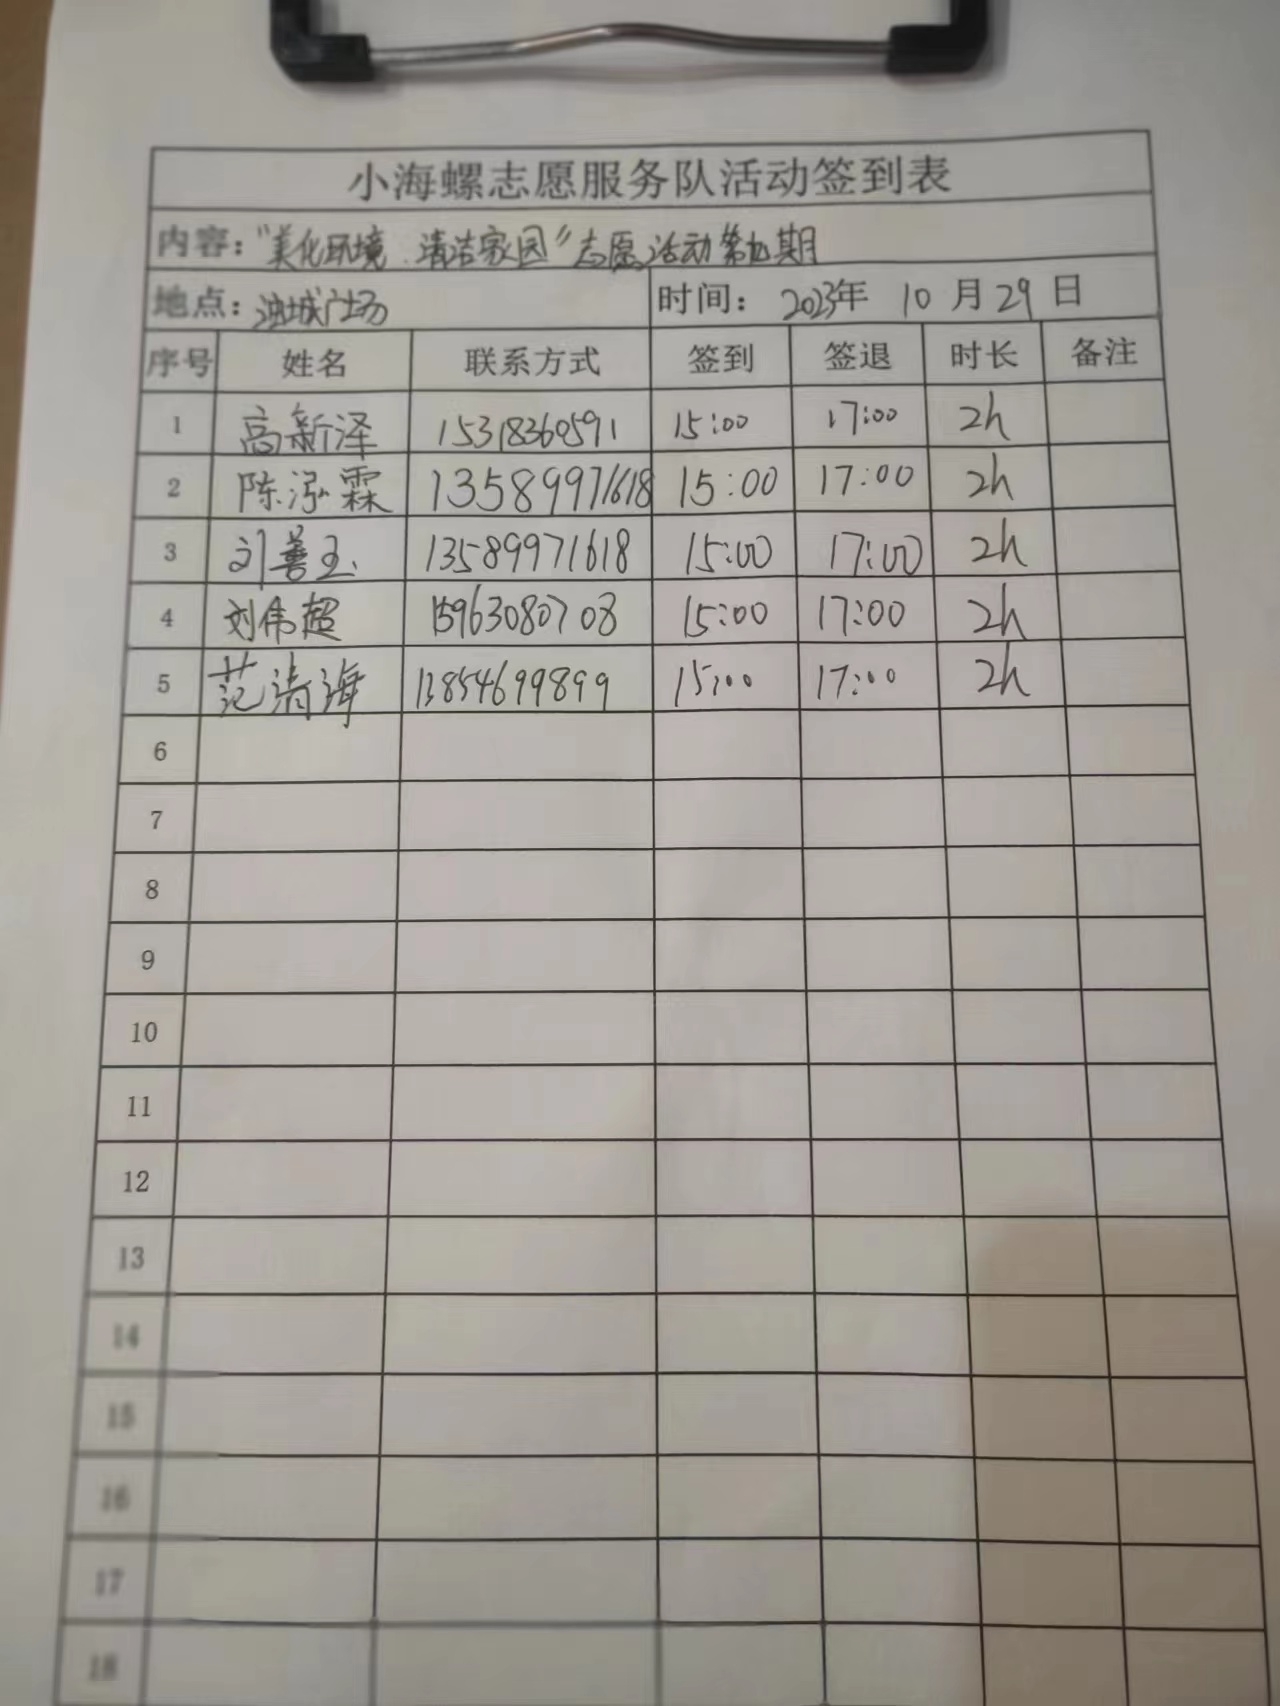 小海螺志愿服务队活动签到表
内容："美化环境 清洁家园"志愿活动第四期
地点：油城广场 时间：2023年 10 月 29 日
序号 姓名 联系方式 签到 签退 时长 备注
1 高新泽 15318360591 15:00 17:00 2h
2 陈泓霖 13589971618 15:00 17:00 2h
3 刘善玉 13589971618 15:00 17:00 2h
4 刘伟超 15963080708 15:00 17:00 2h
5 范清海 13854699899 15:00 17:00 2h
6
7
8
9
10
11
12
13
14
15
16
17
18